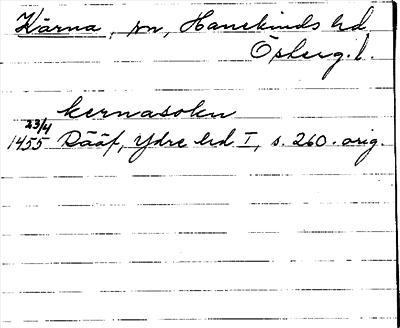 Kärna, sn, Hanekinds hd,
Österg. l.
kernasokn
23/4
1455 Rääf, Ydre hd I, s. 260. orig.